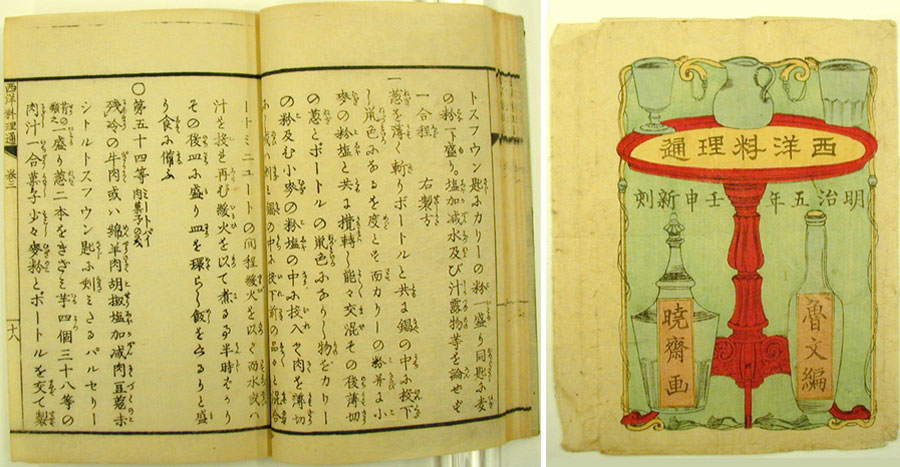 トスフウン匙にカリーの粉一盛り同匙に麦
の粉一下盛り。塩加減水及び汁露物等を論せず
一合程 右製方
一 葱を薄く斬りボートルと共に鍋の中に投下
し鼠色になるを度とし而カリーの粉并に小
麦の粉塩と共に攪転し能々交混その後薄切
の葱とボートルの鼠色になりし物をカリー
の粉及む小麦の粉塩の中に投入れ肉を薄切
鍋の中に投下前の品々と混合
ートミニユートの間程緩火を以て而水或ハ
汁を接き再む緩火を以て煮る事半時ばかり
その後皿に盛り皿を環らし飯を盛
り食に備ふ
○第五十四等肉菓子の
残冷の牛肉或ハ綿羊肉胡椒塩加減肉豆蔲赤
シトルトスフウン匙に剉ミたるパルセリー
前の類之一盛り葱二本をきざミ芋四個三十八等の
肉汁一合菓子少々麦粉とボートルを交て製
西洋料理通 巻三
十八
西洋料理通
明治五年壬申新刻
魯文編
暁齋画